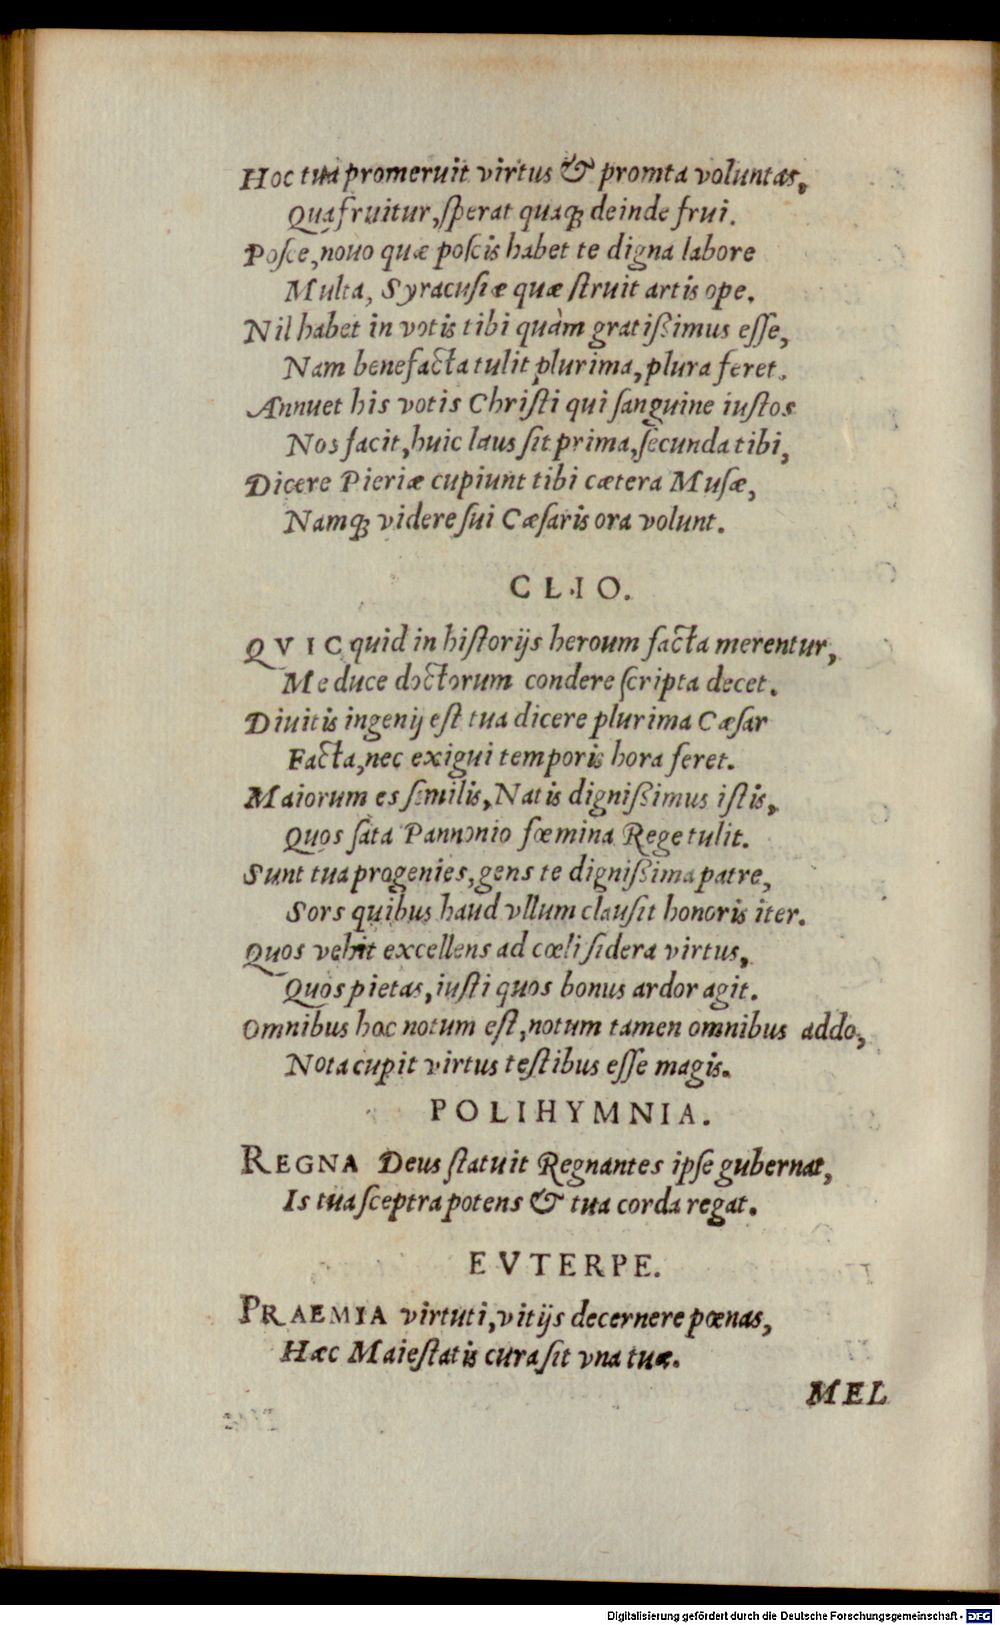 Hoc tua promeruit virtus & promta voluntas,
Qua fruitur, sperat quaqꝫ deinde frui.
Posce, nouo quæ poscis habet te digna labore
Multa, Syracusiæ quæ struit artis ope.
Nil habet in votis tibi quàm gratißimus esse,
Nam benefacta tulit plurima, plura feret.
Annuet his votis Christi qui sanguine iustos
Nos facit, huic laus sit prima, secunda tibi,
Dicere Pieriæ cupiunt tibi cætera Musæ,
Namqꝫ videre sui Cæsaris ora volunt.
CLIO.
QVICquid in historijs heroum facta merentur,
Me duce doctorum condere scripta decet.
Diuitis ingenij est tua dicere plurima Cæsar
Facta, nec exigui temporis hora feret.
Maiorum es similis, Natis dignißimus istis,
Quos sata Pannonio fœmina Rege tulit.
Sunt tua progenies, gens te dignißima patre,
Sors quibus haud vllum clausit honoris iter.
Quos vehit excellens ad cœli sidera virtus,
Quos pietas, iusti quos bonus ardor agit.
Omnibus hoc notum est, notum tamen omnibus addo,
Nota cupit virtus testibus esse magis.
POLIHYMNIA.
REGNA Deus statuit Regnantes ipse gubernat,
Is tua sceptra potens & tua corda regat.
EVTERPE.
PRAEMIA virtuti, vitijs decernere pœnas,
Hæc Maiestatis cura sit vna tuæ.
MEL
Digitalisierung gefördert durch die Deutsche Forschungsgemeinschaft - DFG